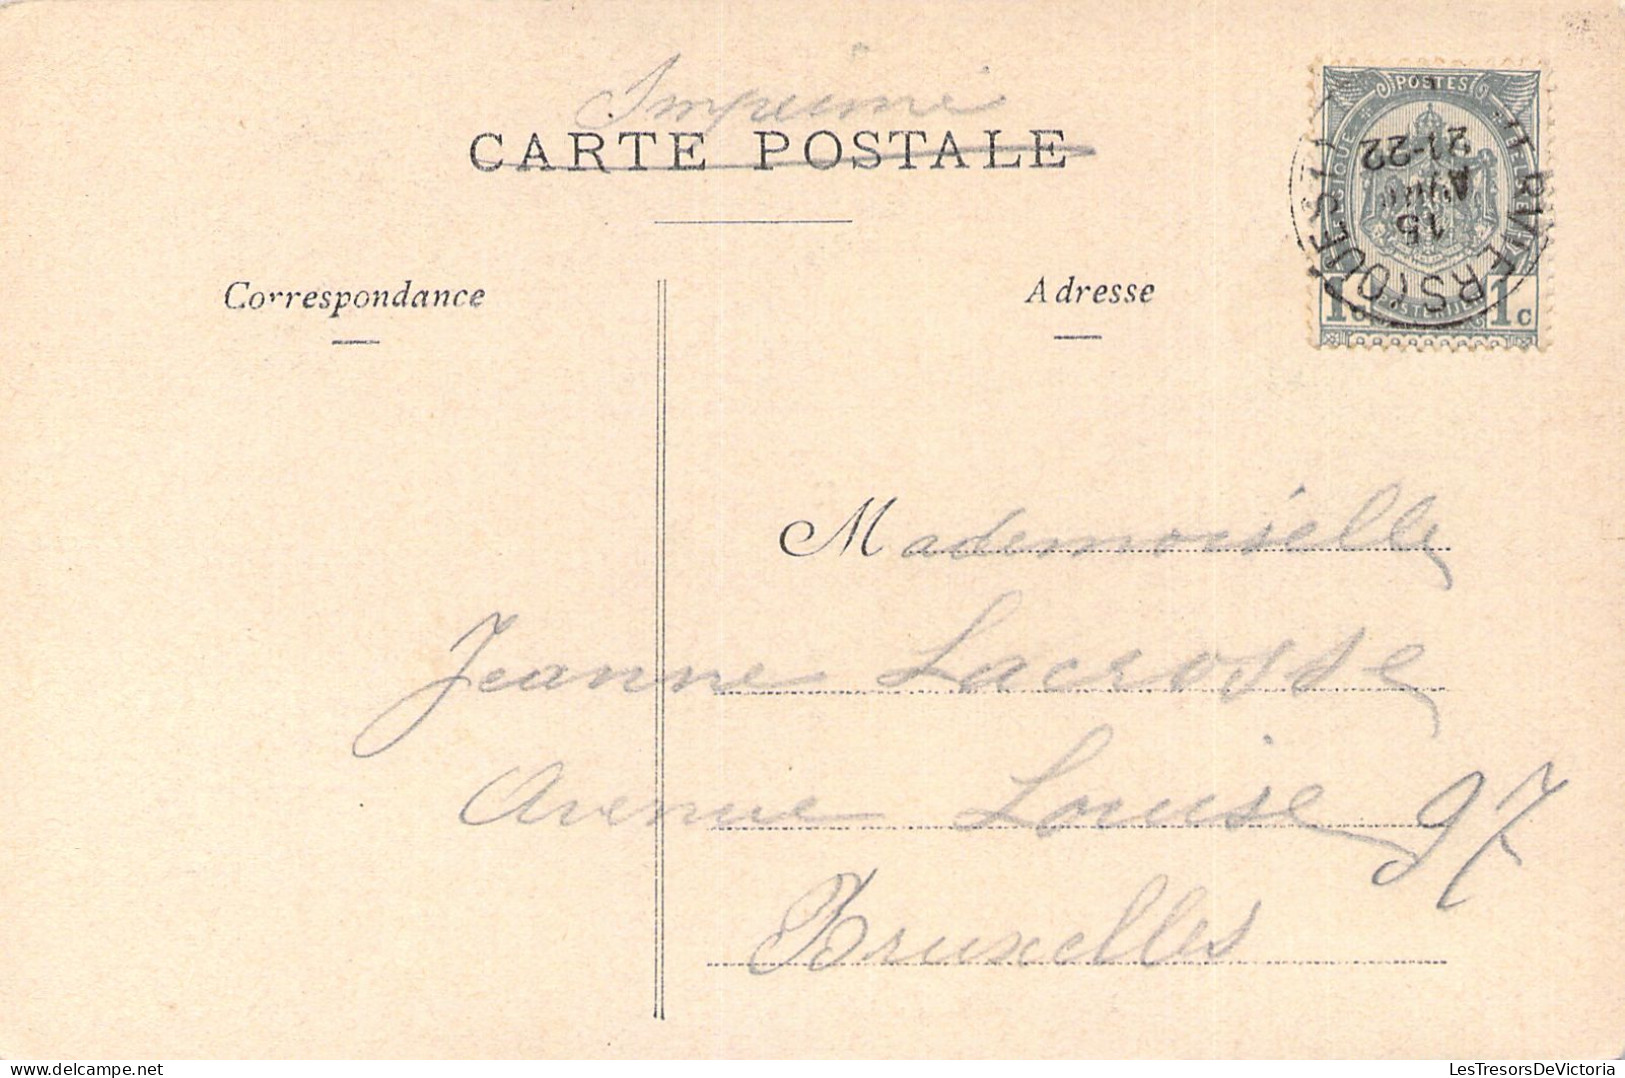 Imprimé
CARTE POSTALE
Correspondance
Adresse
POSTES
1c 1c
VERVIERS (OUEST)
15
21-22
Mademoiselle
Jeanne Lacrosse
Avenue Louise 97
Bruxelles
LesTresorsDeVictoria